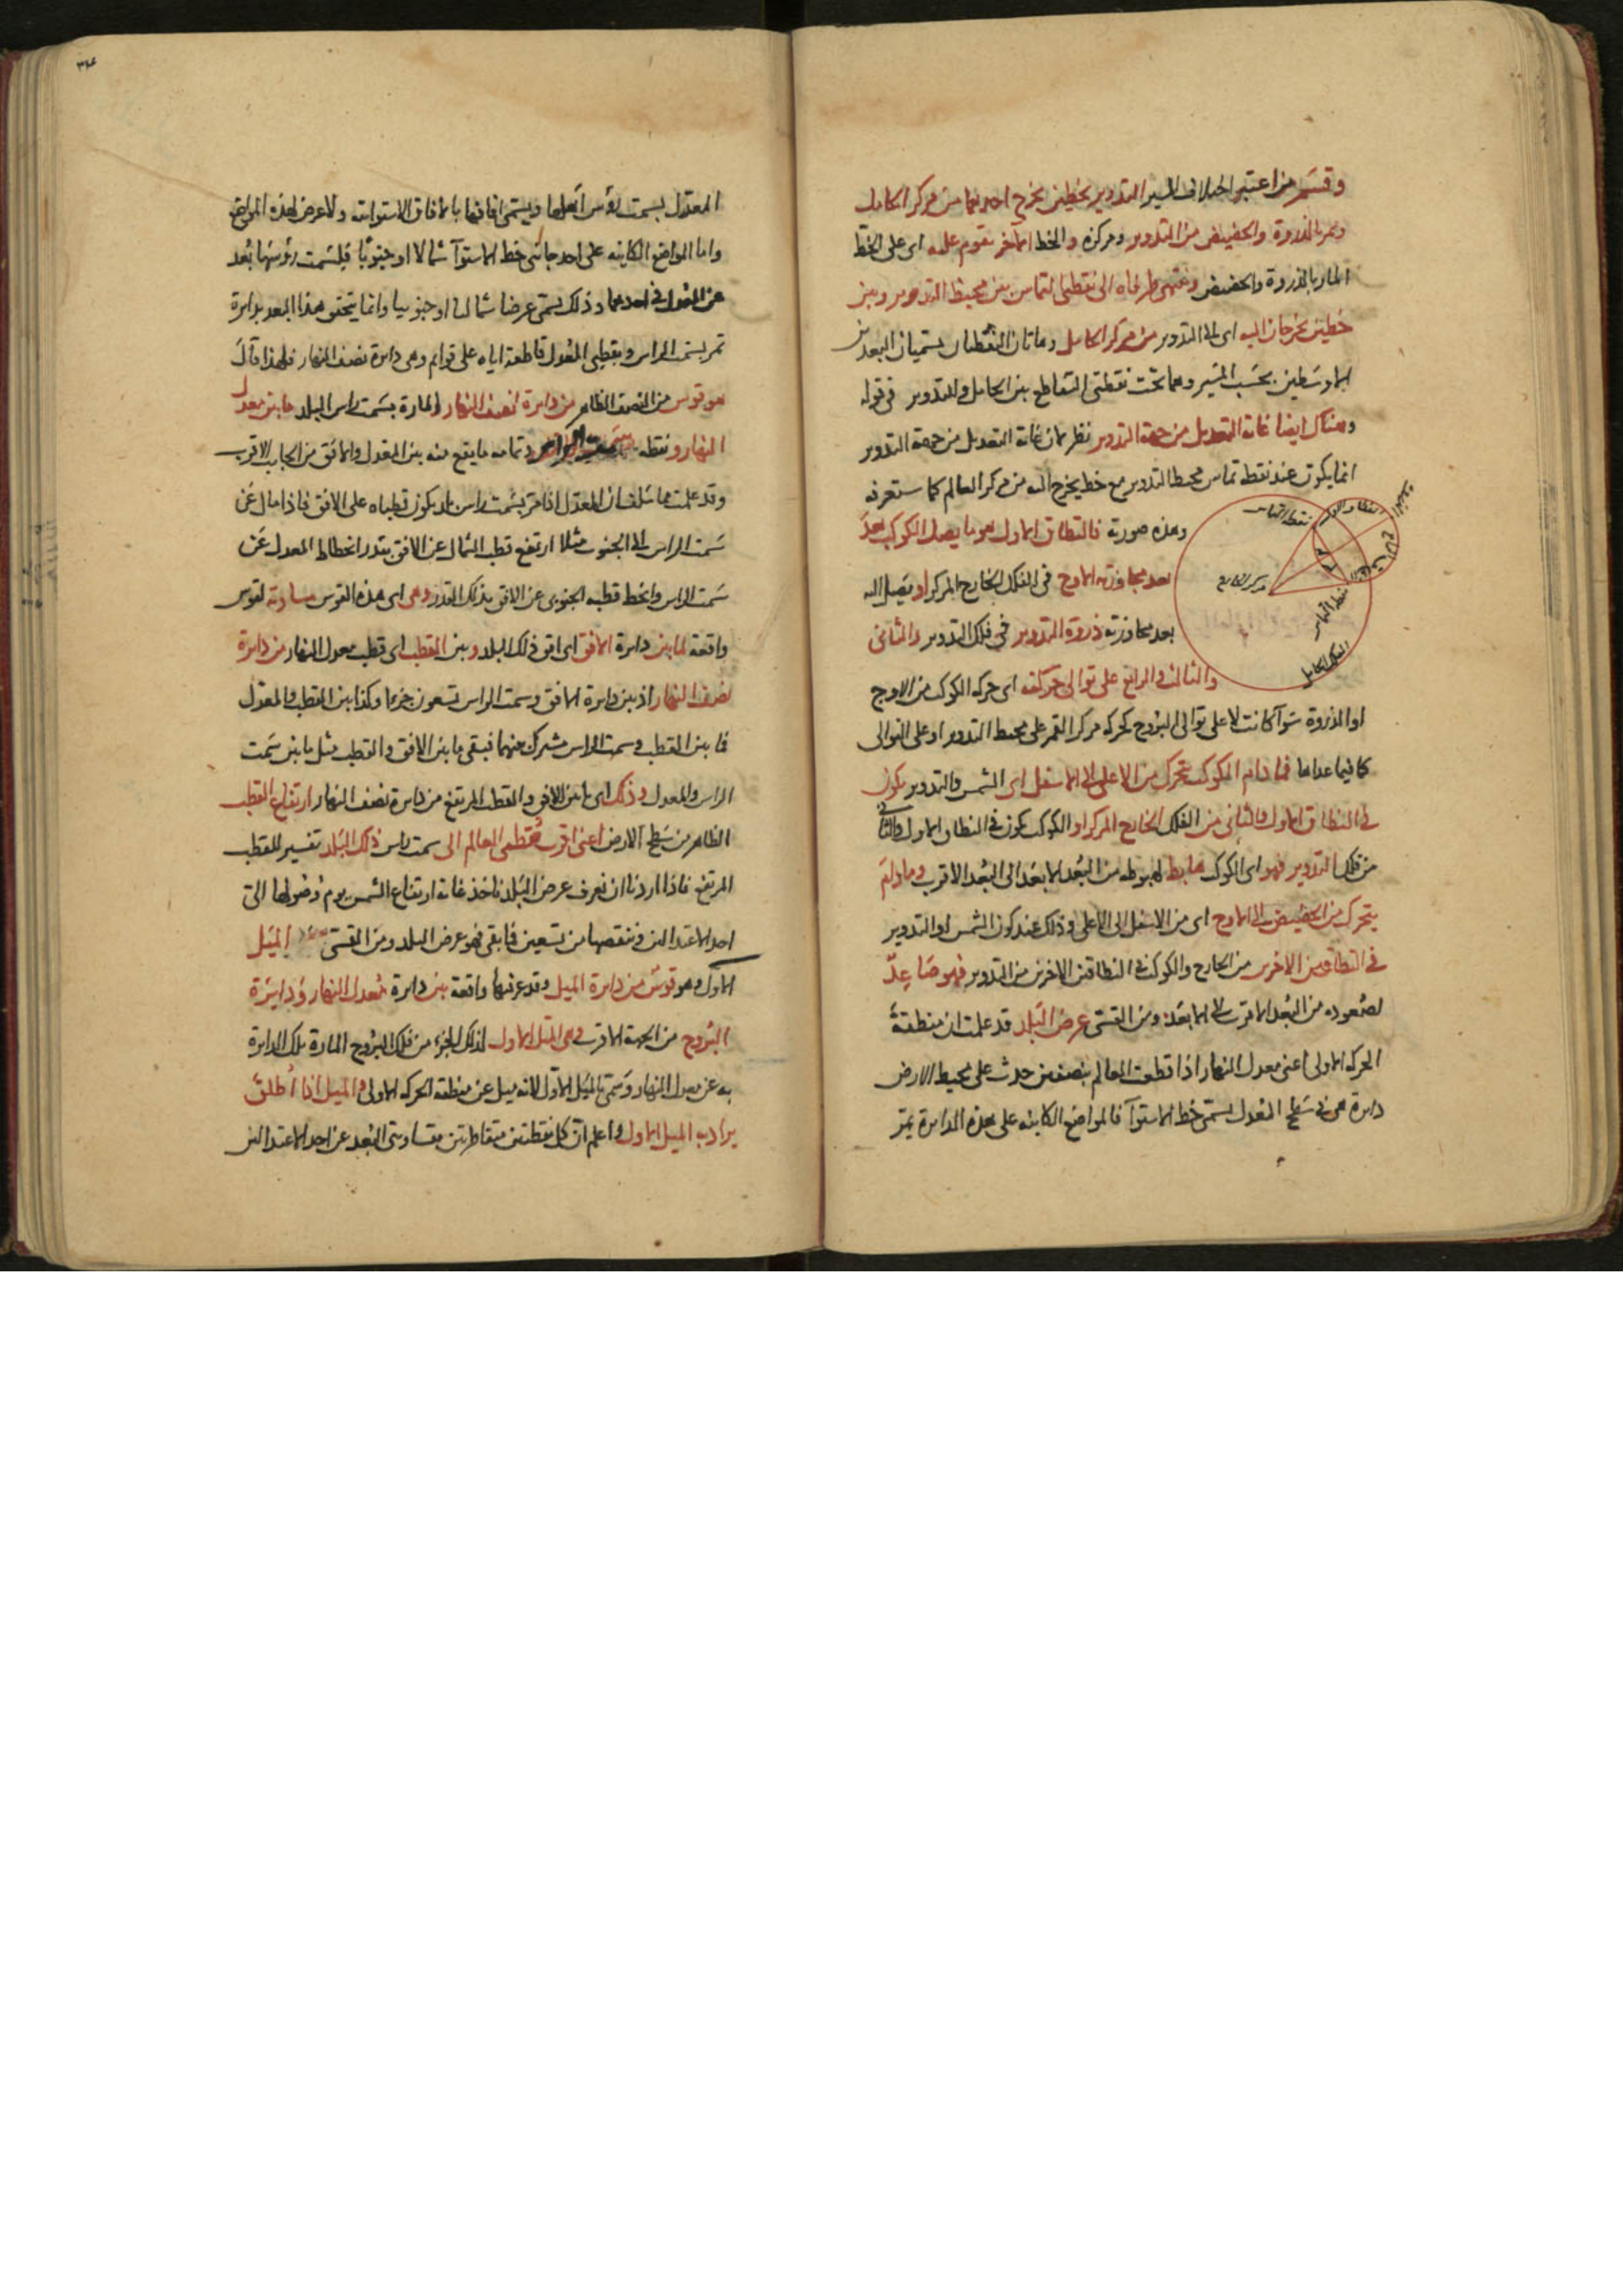 وقسم من اعتبر اختلاف المسير التدوير بخطين يخرج احدهما من مركز الحامل
ويمر بالذروة والحضيض من التدوير ومركزه والخط الآخر يقوم عليه اى على الخط
المار بالذروة والحضيض وينتهى طرفاه الى نقطتى التماس بين محيط التدوير وبين
خطين يخرجان اليه اى الى التدوير من مركز الحامل وهاتان النقطتان يسميان البعدين
الاوسطين بحسب المسير وهما تحت نقطتى التقاطع بين الحامل والتدوير فى قوله
وهناك ايضا غاية التعديل من جهة التدوير نظر لان غاية التعديل من جهة التدوير
انما يكون عند نقطة تماس محيط التدوير مع خط يخرج اليه من مركز العالم كما ستعرفه
وهذه صورته فالنطاق الاول هو ما يصل الكوكب بعد
بعد مجاوزته الاوج فى الفلك الخارج المركز او يصل اليه
بعد مجاوزته ذروة التدوير فى فلك التدوير والثانى
والثالث والرابع على توالى حركته اى حركة الكوكب من الاوج
او الذروة سوآ كانت لا على توالى البروج كحركة مركز القمر على محيط التدوير او على التوالى
كما فيما عداها فما دام الكوكب يتحرك من الاعلى الى الاسفل اى الشمس والتدوير يكون
فى النطاق الاول والثانى من الفلك الخارج المركز او الكوكب يكون فى النطاق الاول والثانى
من فلك التدوير فهو اى الكوكب هابط لهبوطه من البُعد الابعد الى البُعد الاقرب وما دام
يتحرك من الحضيض الى الاوج اى من الاسفل الى الاعلى وذلك عند كون الشمس او التدوير
فى النطاقين الاخرين من الخارج والكوكب فى النطاقين الاخرين من التدوير فهو صاعد
لصعوده من البُعد الاقرب الى الابعد ومن القسى عرض البلد قد علمت ان منطقة
الحركة الاولى اعنى معدل النهار اذا قطعت العالم بنصفين حدث على محيط الارض
دايرة هى فى سطح المعدل يسمى خط الاستوآ فالمواضع الكاينة على هذه الدايرة يمر
نقطة التماس
النطاق الاول
الذروة
الرابع
مركز الخارج
نقطة التماس
الفلك الحامل
٣٤
المعدل بسمت رؤس اهلها ويسمى افاقها بالافاق الاستوائية ولا عرض لهذه المواضع
واما المواضع الكاينة على احد جانبى خط الاستوآ شمالا او جنوبًا فلسمت رؤسها بُعد
عن المعدل فى احدهما وذلك يسمى عرضا شماليا او جنوبيا وانما يتحقق هذا البعد بدايرة
تمر بسمت الراس وبقطبى المعدل قاطعة اياه على قوايم وهى دايرة نصف النهار فلهذا قال
هو قوس من النصف الظاهر من دايرة نصف النهار المارة بسمت راس البلد ما بين معدل
النهار ونقطة سمت الراس وتمامه ما يقع منه بين المعدل والافق من الجانب الاقرب
وقد علمت مما سلف ان المعدل اذا مر بسمت راس بلد يكون قطباه على الافق فاذا مال عن
سمت الراس الى الجنوب مثلا ارتفع قطب الشمال عن الافق بقدر انحطاط المعدل عن
سمت الراس وانحط قطبه الجنوبى عن الافق بذلك القدر وهى اى هذه القوس مساوية لقوس
واقعة لما بين دايرة الافق اى افق ذلك البلد وبين القطب اى قطب معدل النهار من دايرة
نصف النهار اذ بين دايرة الافق وسمت الراس تسعون جزءا وكذا بين القطب والمعدل
فما بين القطب وسمت الراس مشترك بينهما فبقى ما بين الافق والقطب مثل ما بين سمت
الراس والمعدل وذلك اى ما بين الافق والقطب المرتفع من دايرة نصف النهار ارتفاع القطب
الظاهر من سطح الارض اعنى اقرب قطبى العالم الى سمت راس ذلك البلد تفسير للقطب
المرتفع فاذا اردنا ان نعرف عرض البلد ناخذ غاية ارتفاع الشمس يوم وصولها الى
احد الاعتدالين وننقصها من تسعين فما بقى فهو عرض البلد ومن القسى الميل
الاول وهو قوس من دايرة الميل وقد عرفتها واقعة بين دايرة معدل النهار ودايرة
البروج من الجهة الاقرب وهى الميل الاول لذلك الجزء من فلك البروج المارة تلك الدايرة
به عن معدل النهار وسمى بالميل الاول لانه ميل عن منطقة الحركة الاولى والميل اذا اُطلق
يراد به الميل الاول واعلم ان كل نقطتين متقاطرتين متساويتى البعد عن احد الاعتدالين